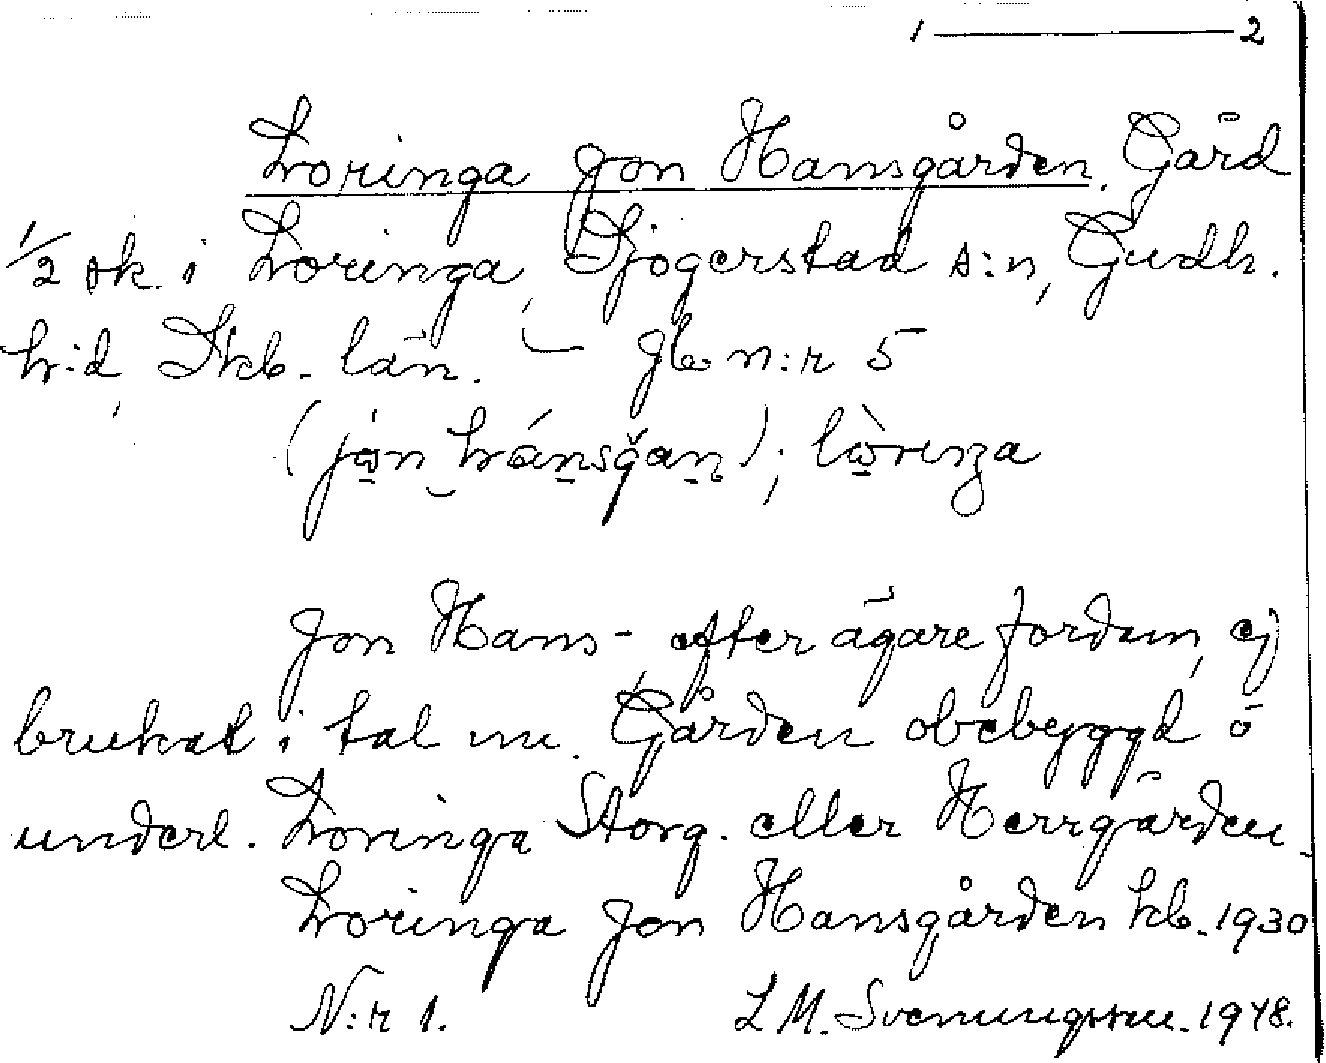 1 ——— 2
Loringa Jon Hansgården. Gård
1/2 sk. i Loringa, Sjogerstad s:n, Gudh.
h:d, Skb. län. — Jb. n:r 5
(jòn hánsǧan); lòrinza
Jon Hans-, efter ägare fordom, ej
brukat i tal nu. Gården obebyggd o
underl. Loringa Storg. eller Herrgården.
Loringa Jon Hansgården kb. 1930
N:r 1. L M. Svenungsson. 1948.